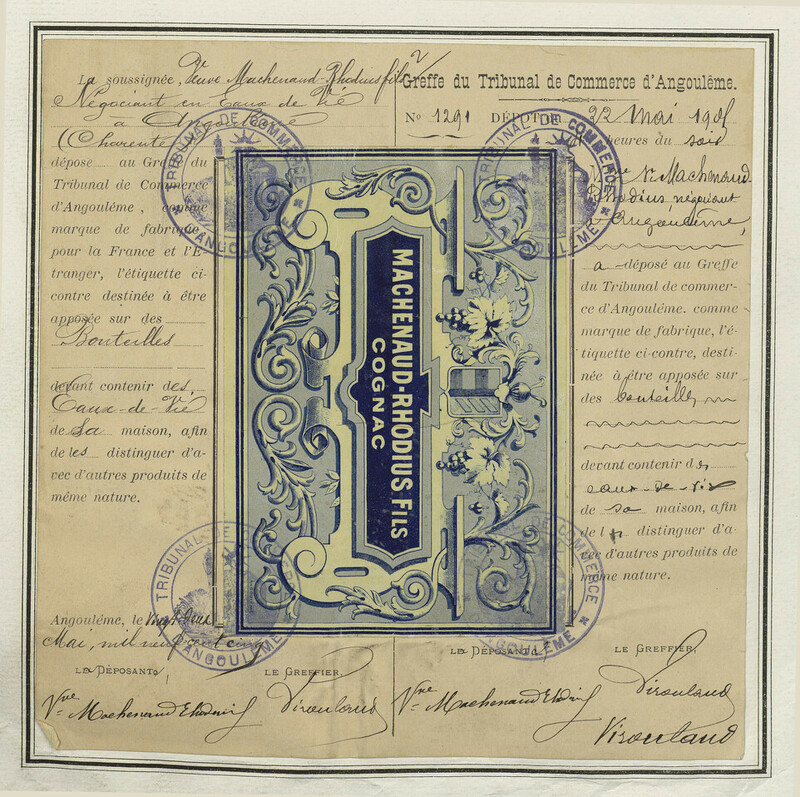 La soussignée, Veuve Machenaud-Rhodius fils
Négociant en Eaux de Vie
à Angoulême
(Charente)
dépose au Greffe du
Tribunal de Commerce
d'Angoulême, comme
marque de fabrique
pour la France et l'É-
tranger, l'étiquette ci-
contre destinée à être
apposée sur des
Bouteilles
devant contenir des
Eaux-de-Vie
de sa maison, afin
de les distinguer d'a-
vec d'autres produits de
même nature.
Angoulême, le vingt-deux
Mai, mil neuf cent cinq
LA DÉPOSANTE, LE GREFFIER,
Vve Machenaud Rhodius fils
MACHENAUD-RHODIUS FILS
COGNAC
Greffe du Tribunal de Commerce d'Angoulême.
No 1291 DÉPOT DU 22 Mai 1905
heures du soir
Vve Machenaud
Rhodius négociant
à Angoulême,
a déposé au Greffe
du Tribunal de commer-
ce d'Angoulême. comme
marque de fabrique, l'é-
tiquette ci-contre, desti-
née à être apposée sur
des bouteilles
devant contenir des
eaux-de-vie
de sa maison, afin
de les distinguer d'a-
vec d'autres produits de
même nature.
LA DÉPOSANTE, LE GREFFIER,
Vve Machenaud Rhodius fils
TRIBUNAL DE COMMERCE
D'ANGOULÊME
TRIBUNAL DE COMMERCE
D'ANGOULÊME
TRIBUNAL DE COMMERCE
D'ANGOULÊME
TRIBUNAL DE COMMERCE
D'ANGOULÊME